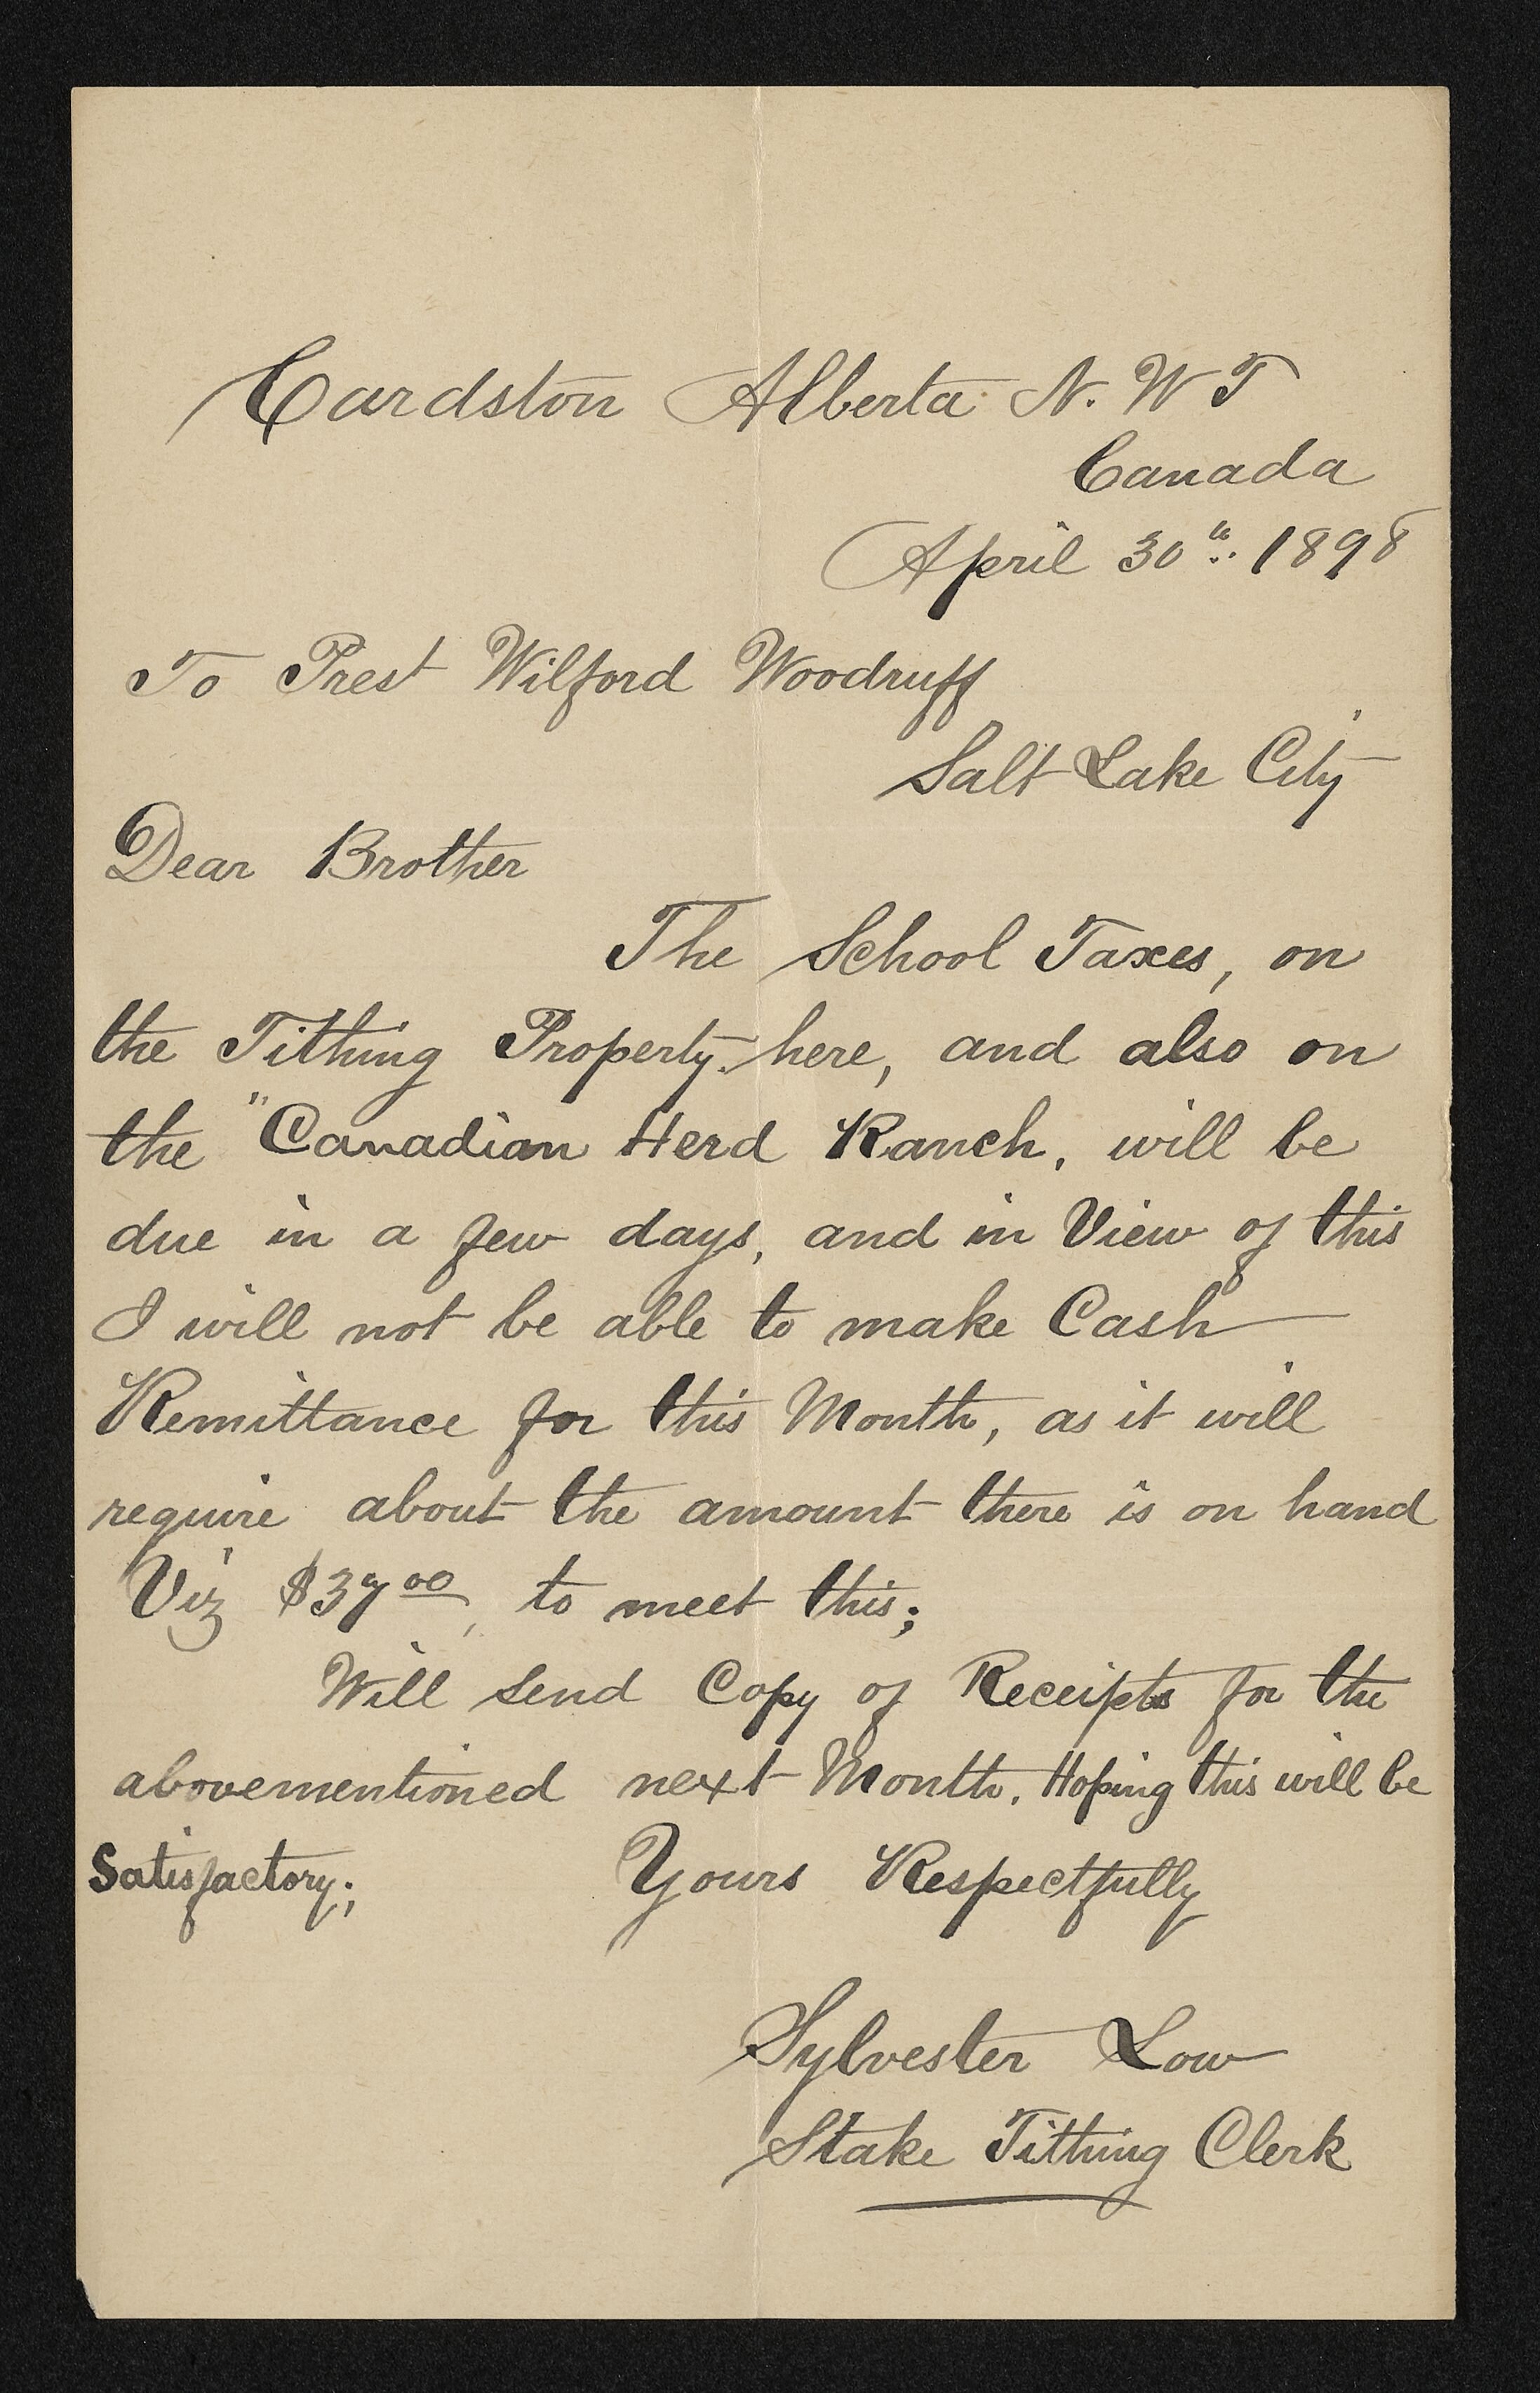 Cardston Alberta N. W T
Canada
April 30th. 1898
To Prest Wilford Woodruff
Salt Lake City
Dear Brother
The School Taxes, on
the Tithing Property here, and also on
the "Canadian Herd Ranch, will be
due in a few days, and in View of this
I will not be able to make Cash
Remittance for this Month, as it will
require about the amount there is on hand
Viz $37 00, to meet this;
Will send Copy of Receipts for the
abovementioned next Month. Hoping this will be
Satisfactory; Yours Respectfully
Sylvester Low
Stake Tithing Clerk